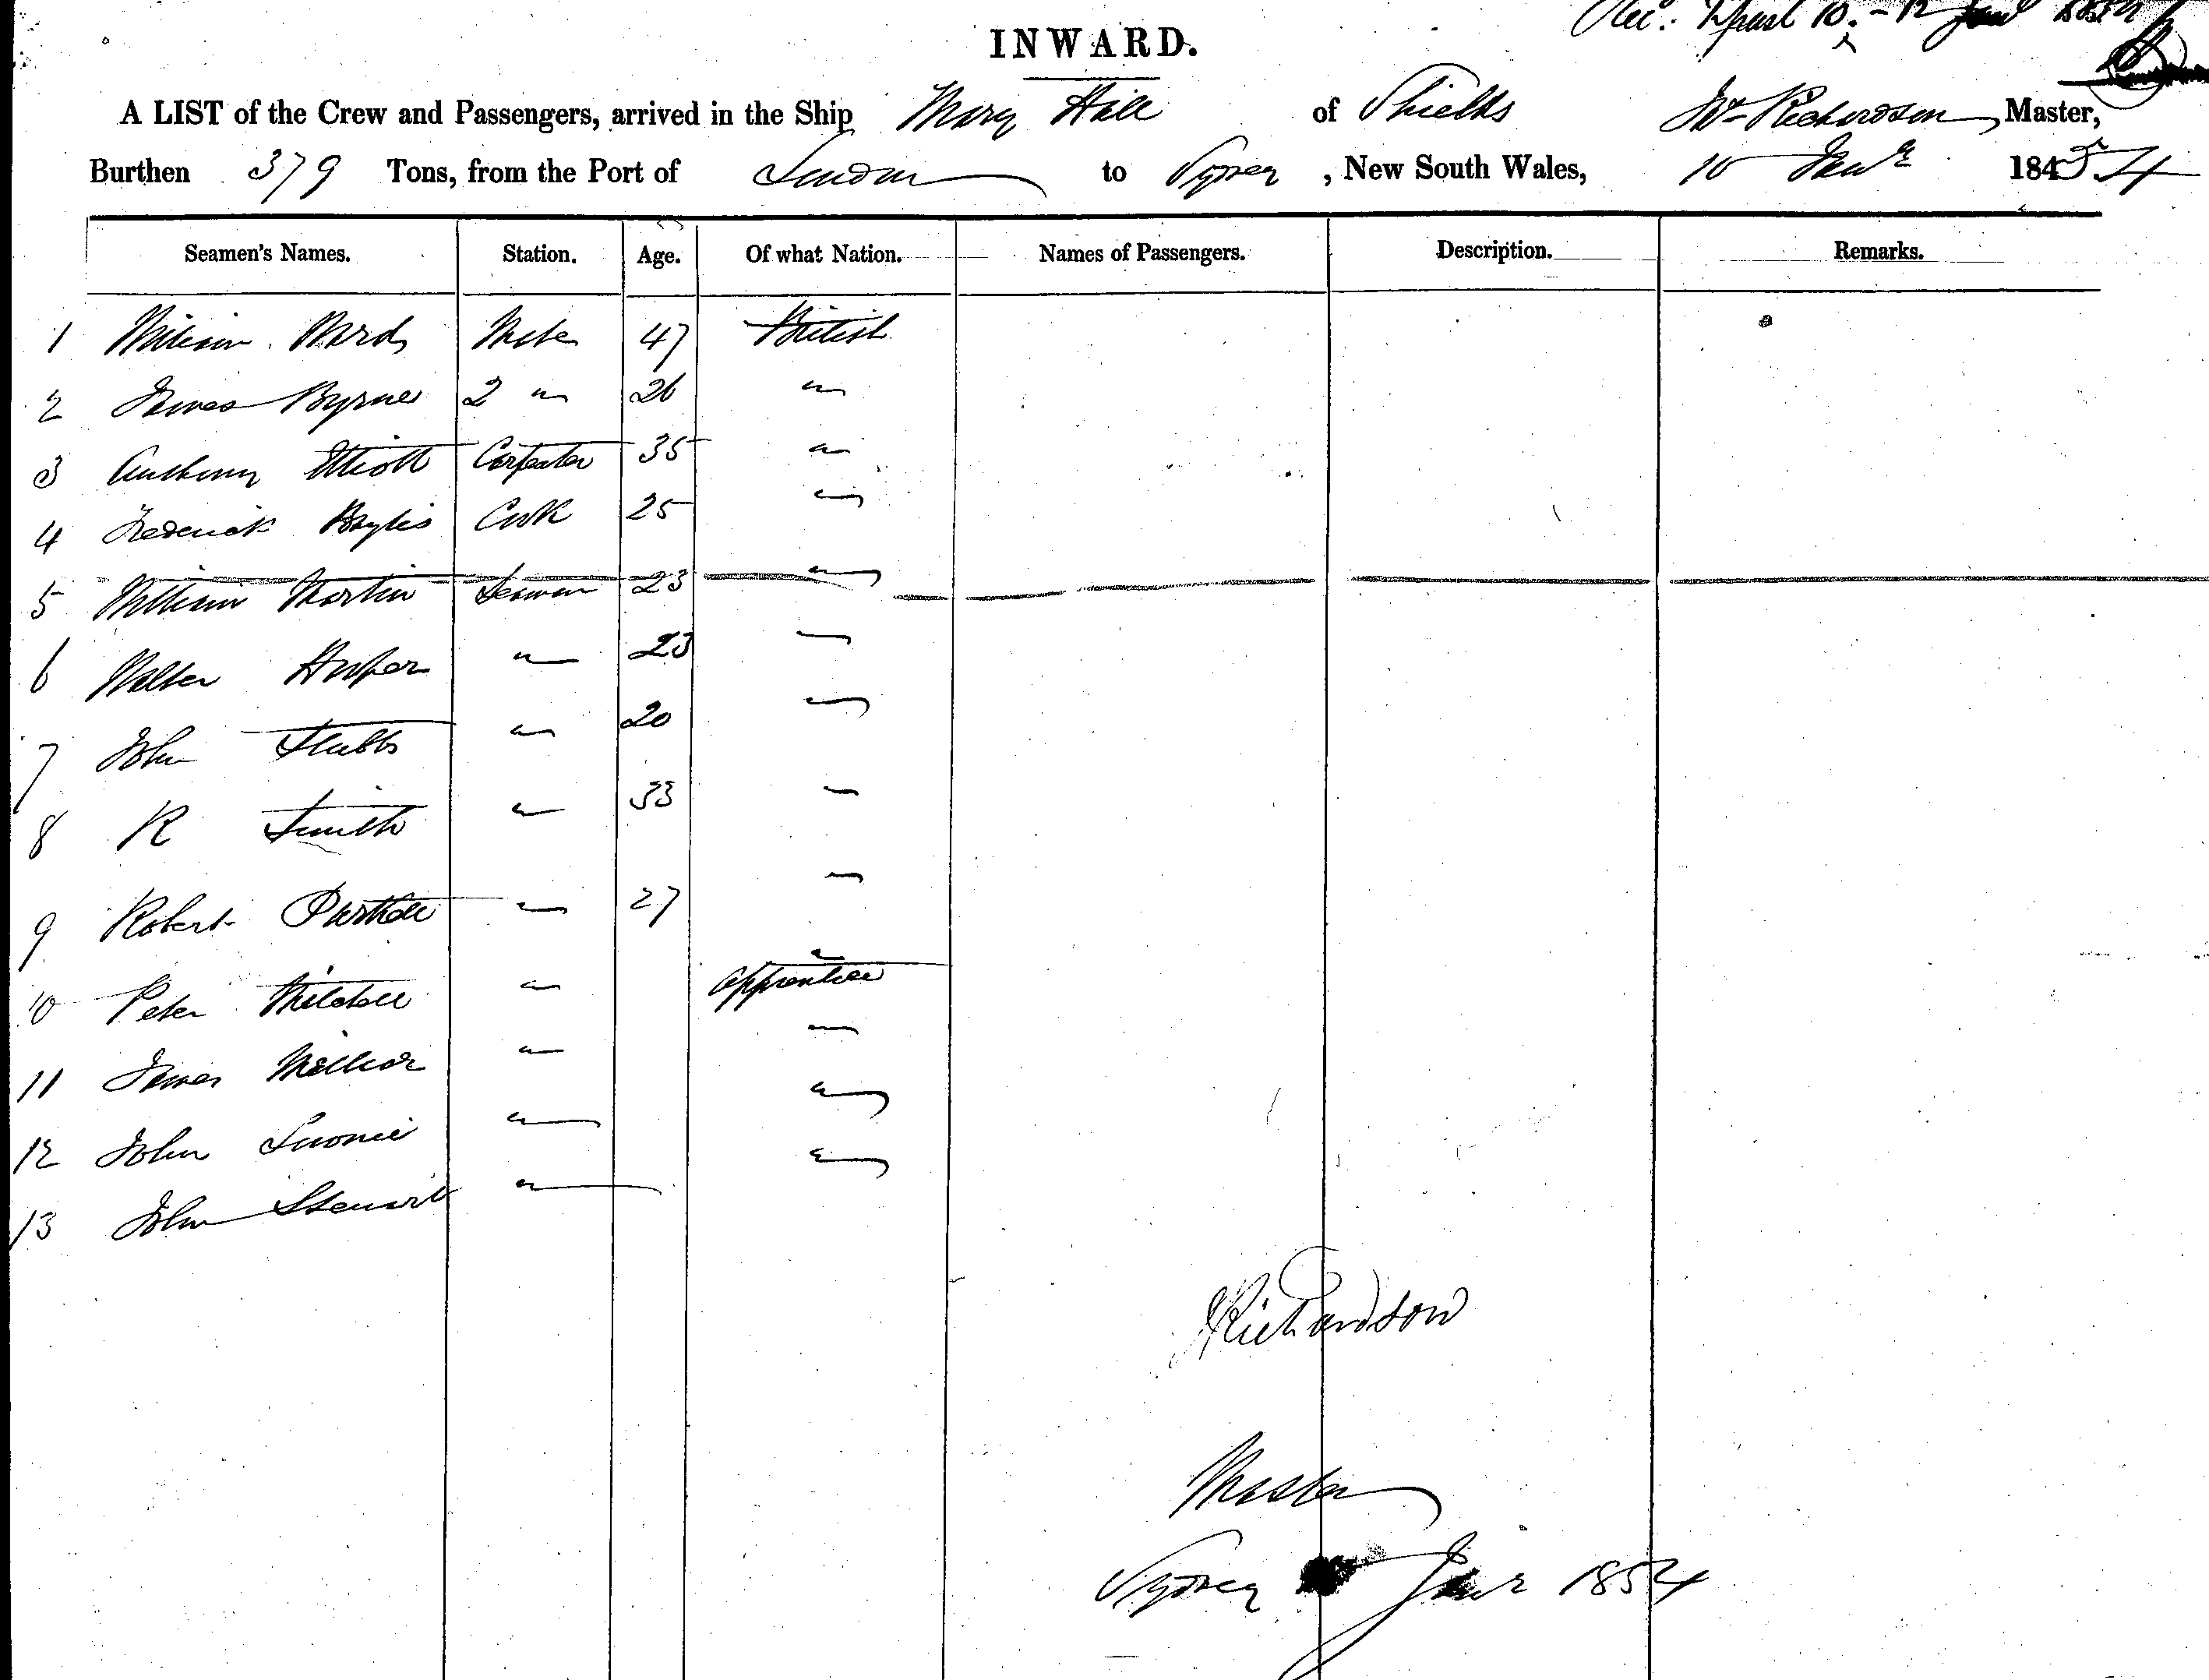 INWARD.
A LIST of the Crew and Passengers, arrived in the Ship Mary Hill of Shields Wm Richardson, Master,
Burthen 379 Tons, from the Port of London to Sydney, New South Wales, 10 Jany 184 54
Seamen's Names. Station. Age. Of what Nation. Names of Passengers. Description. Remarks.
1 William Mate 47 British
2 James Byrne 2 " 26 "
3 Anthony Elliott Carpenter 35 "
4 Frederick Baylis Cook 25 "
5 William Martin Seaman 23 "
6 Walter Hooper " 23 "
7 John Stubbs " 20 "
8 R Smith " 33 "
9 Robert " 27 "
"
10 Peter Mitchell " Apprentice
11 James " "
12 John " "
13 John Stewart " "
Richardson
Master
Sydney Jany 1854